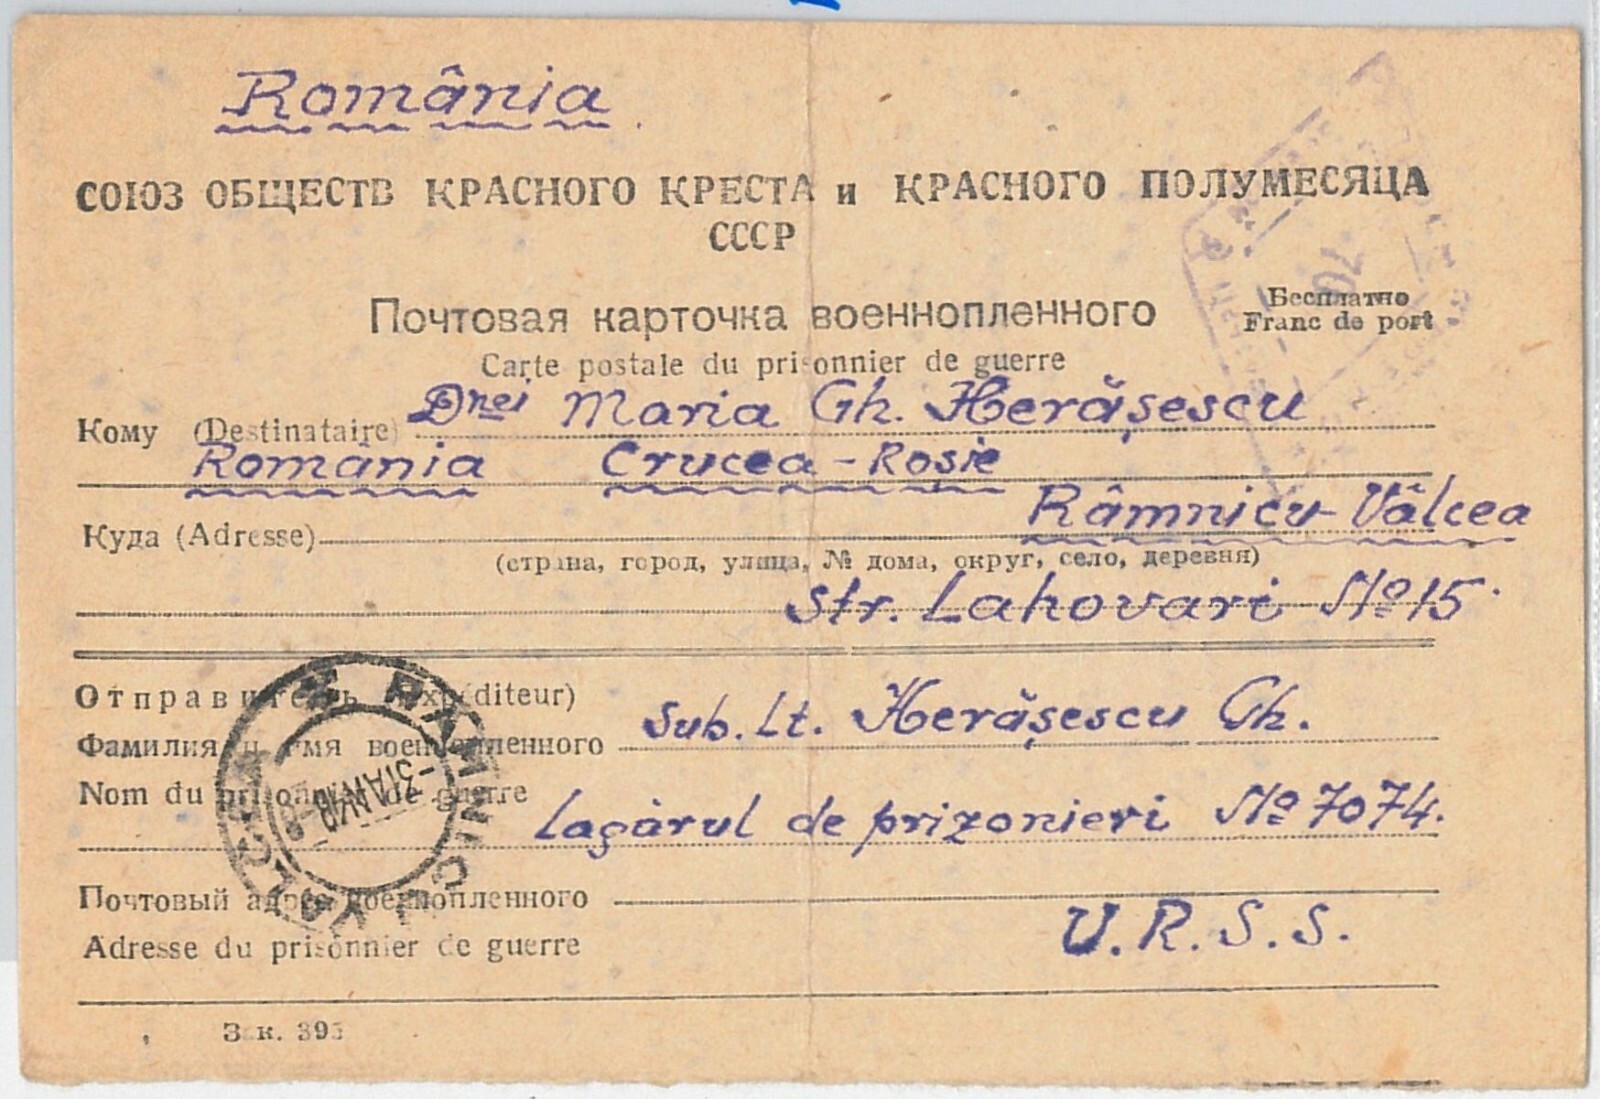 România
СОЮЗ ОБЩЕСТВ КРАСНОГО КРЕСТА и КРАСНОГО ПОЛУМЕСЯЦА
СССР
Почтовая карточка военнопленного
Бесплатно
Franc de port
Carte postale du prisonnier de guerre
Кому (Destinataire) Dnei Maria Gh. Herășescu
Romania Crucea-Rosie
Куда (Adresse) Râmnicu-Vâlcea
(страна, город, улица, № дома, округ, село, деревня)
str. Lahovari No 15.
Отправитель (Expéditeur)
Фамилия и имя военнопленного Sub. Lt. Herășescu Gh.
Nom du prisonnier de guerre
Lagărul de prizonieri No 7074.
Почтовый адрес военнопленного
U.R.S.S.
Adresse du prisonnier de guerre
Зак. 395
RAMNICU VALCEA
-3 IAN 48
70